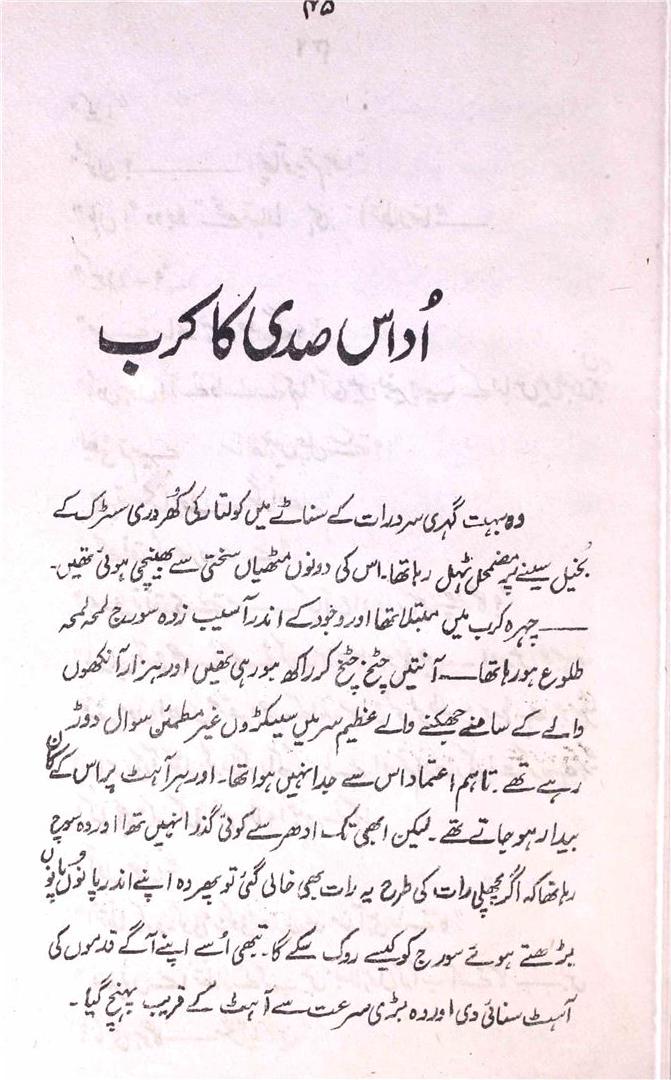 ۲۵
اُداس صدی کا کرب
وہ بہت گہری سرد رات کے سناٹے میں کولتار کی کُھردری سڑک کے
بُخیل سینے پر مضمحل ٹہل رہا تھا۔ اس کی دونوں مٹھیاں سختی سے بھینچی ہوئی تھیں۔
— چہرہ کرب میں مبتلا تھا اور وجود کے اندر آسیب زدہ سورج لمحہ لمحہ
طلوع ہو رہا تھا — آنتیں چٹخ چٹخ کر راکھ ہو رہی تھیں اور ہزار آنکھوں
والے کے سامنے جھکنے والے عظیم سر میں سیکڑوں غیر مطمئن سوال دوڑ
رہے تھے۔ تاہم اعتماد اس سے جدا نہیں ہوا تھا۔ اور ہر آہٹ پر اس کے کان
بیدار ہو جاتے تھے۔ لیکن ابھی تک ادھر سے کوئی گذرا نہیں تھا اور وہ سوچ
رہا تھا کہ اگر پچھلی رات کی طرح یہ رات بھی خالی گئی تو پھر وہ اپنے اندر پانوں پانوں
بڑھتے ہوئے سورج کو کیسے روک سکے گا۔ تبھی اُسے اپنے آگے قدموں کی
آہٹ سنائی دی اور وہ بڑی سرعت سے آہٹ کے قریب پہنچ گیا۔